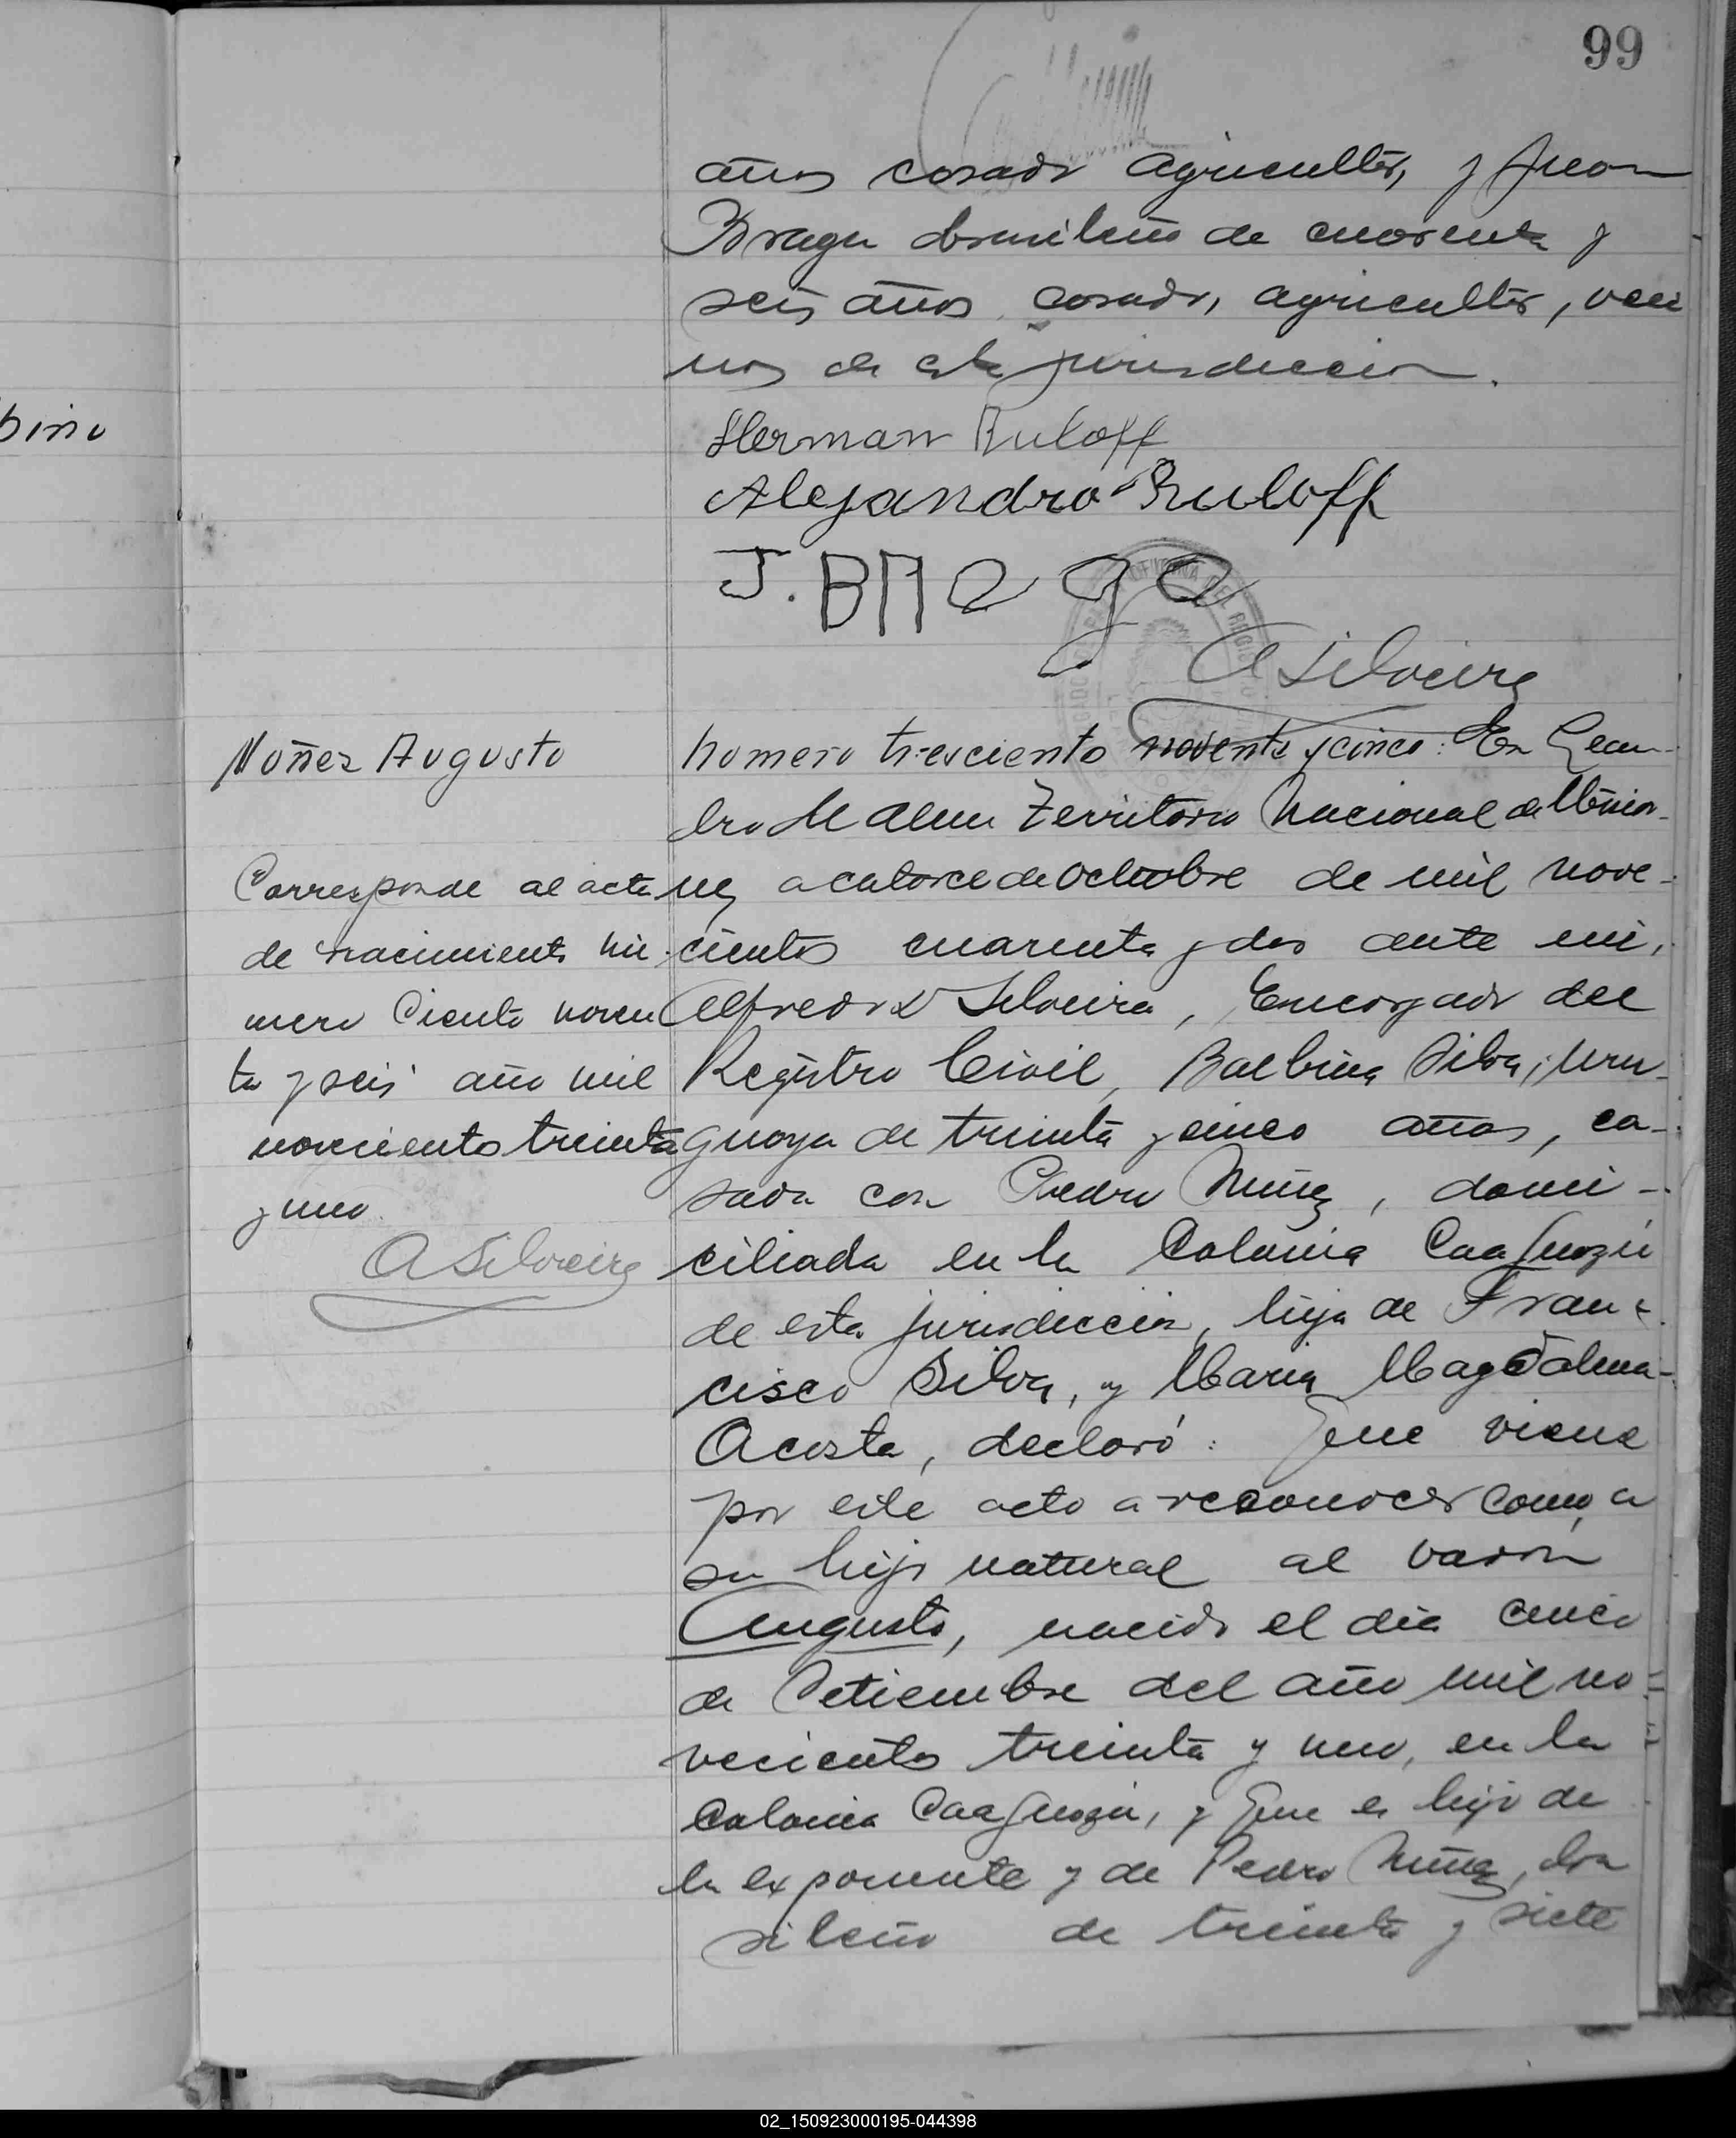 99
años casado agricultor, y Juan
Braga brasileño de cuarenta y
seis años, casado, agricultor, veci
nos de esta jurisdiccion.
bino
Herman Ruloff
Alejandro Ruloff
J. BRaga
OFICINA DEL REGIS
A Silveira
Nuñez Augusto
Corresponde al acta
de nacimiento nu-
mero Ciento noven
ta y seis año mil
novecientos treinta
y uno.
A Silveira
Numero trescientos noventa y cinco: En Lean-
dro N Alem Territorio Nacional de Mision-
es, a catorce de Octubre de mil nove-
cientos cuarenta y dos ante mi,
Alfredo D Silveira, Encargado del
Registro Civil, Balbina Silva, uru-
guaya de treinta y cinco años, ca-
sada con Pedro Nuñez, domi-
ciliada en la Colonia Caaguazú
de esta jurisdiccion, hija de Fran-
cisco Silva, y Maria Magdalena
Acosta, declaró: Que viene
por este acto a reconocer como a
su hijo natural al varon
Augusto, nacido el dia cinco
de Setiembre del año mil no-
vecientos treinta y uno, en la
Colonia Caaguazú, y que es hijo de
la exponente y de Pedro Nuñez, bra
sileño de treinta y siete
02_150923000195-044398